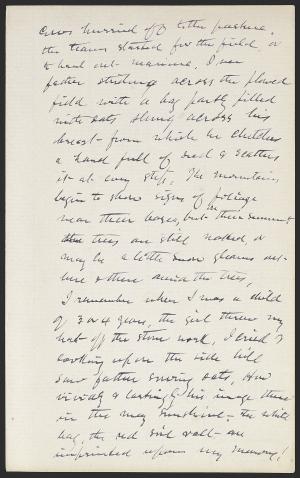 cows hurried off to the pasture,
the teams started for the field, or
to haul out manure. I see
father striding across the plowed
field with a bag partly filled
with oats slung across his
breast – from which he clutches
a hand full of seed & scatters
it at every step. The mountains
begin to show signs of foliage
near their bases, but on their summits
the trees are still naked, &
may be a little snow gleams out
here & there amid the trees,
I remember when I was a child
of 3 or 4 years, the girl threw my
hat off the stone work, I cried &
looking upon the side hill
saw father sowing oats, How
vividly & lastingly his image there
in the may sunshine – the white
bag, the red soil – all are
imprinted upon my memory!